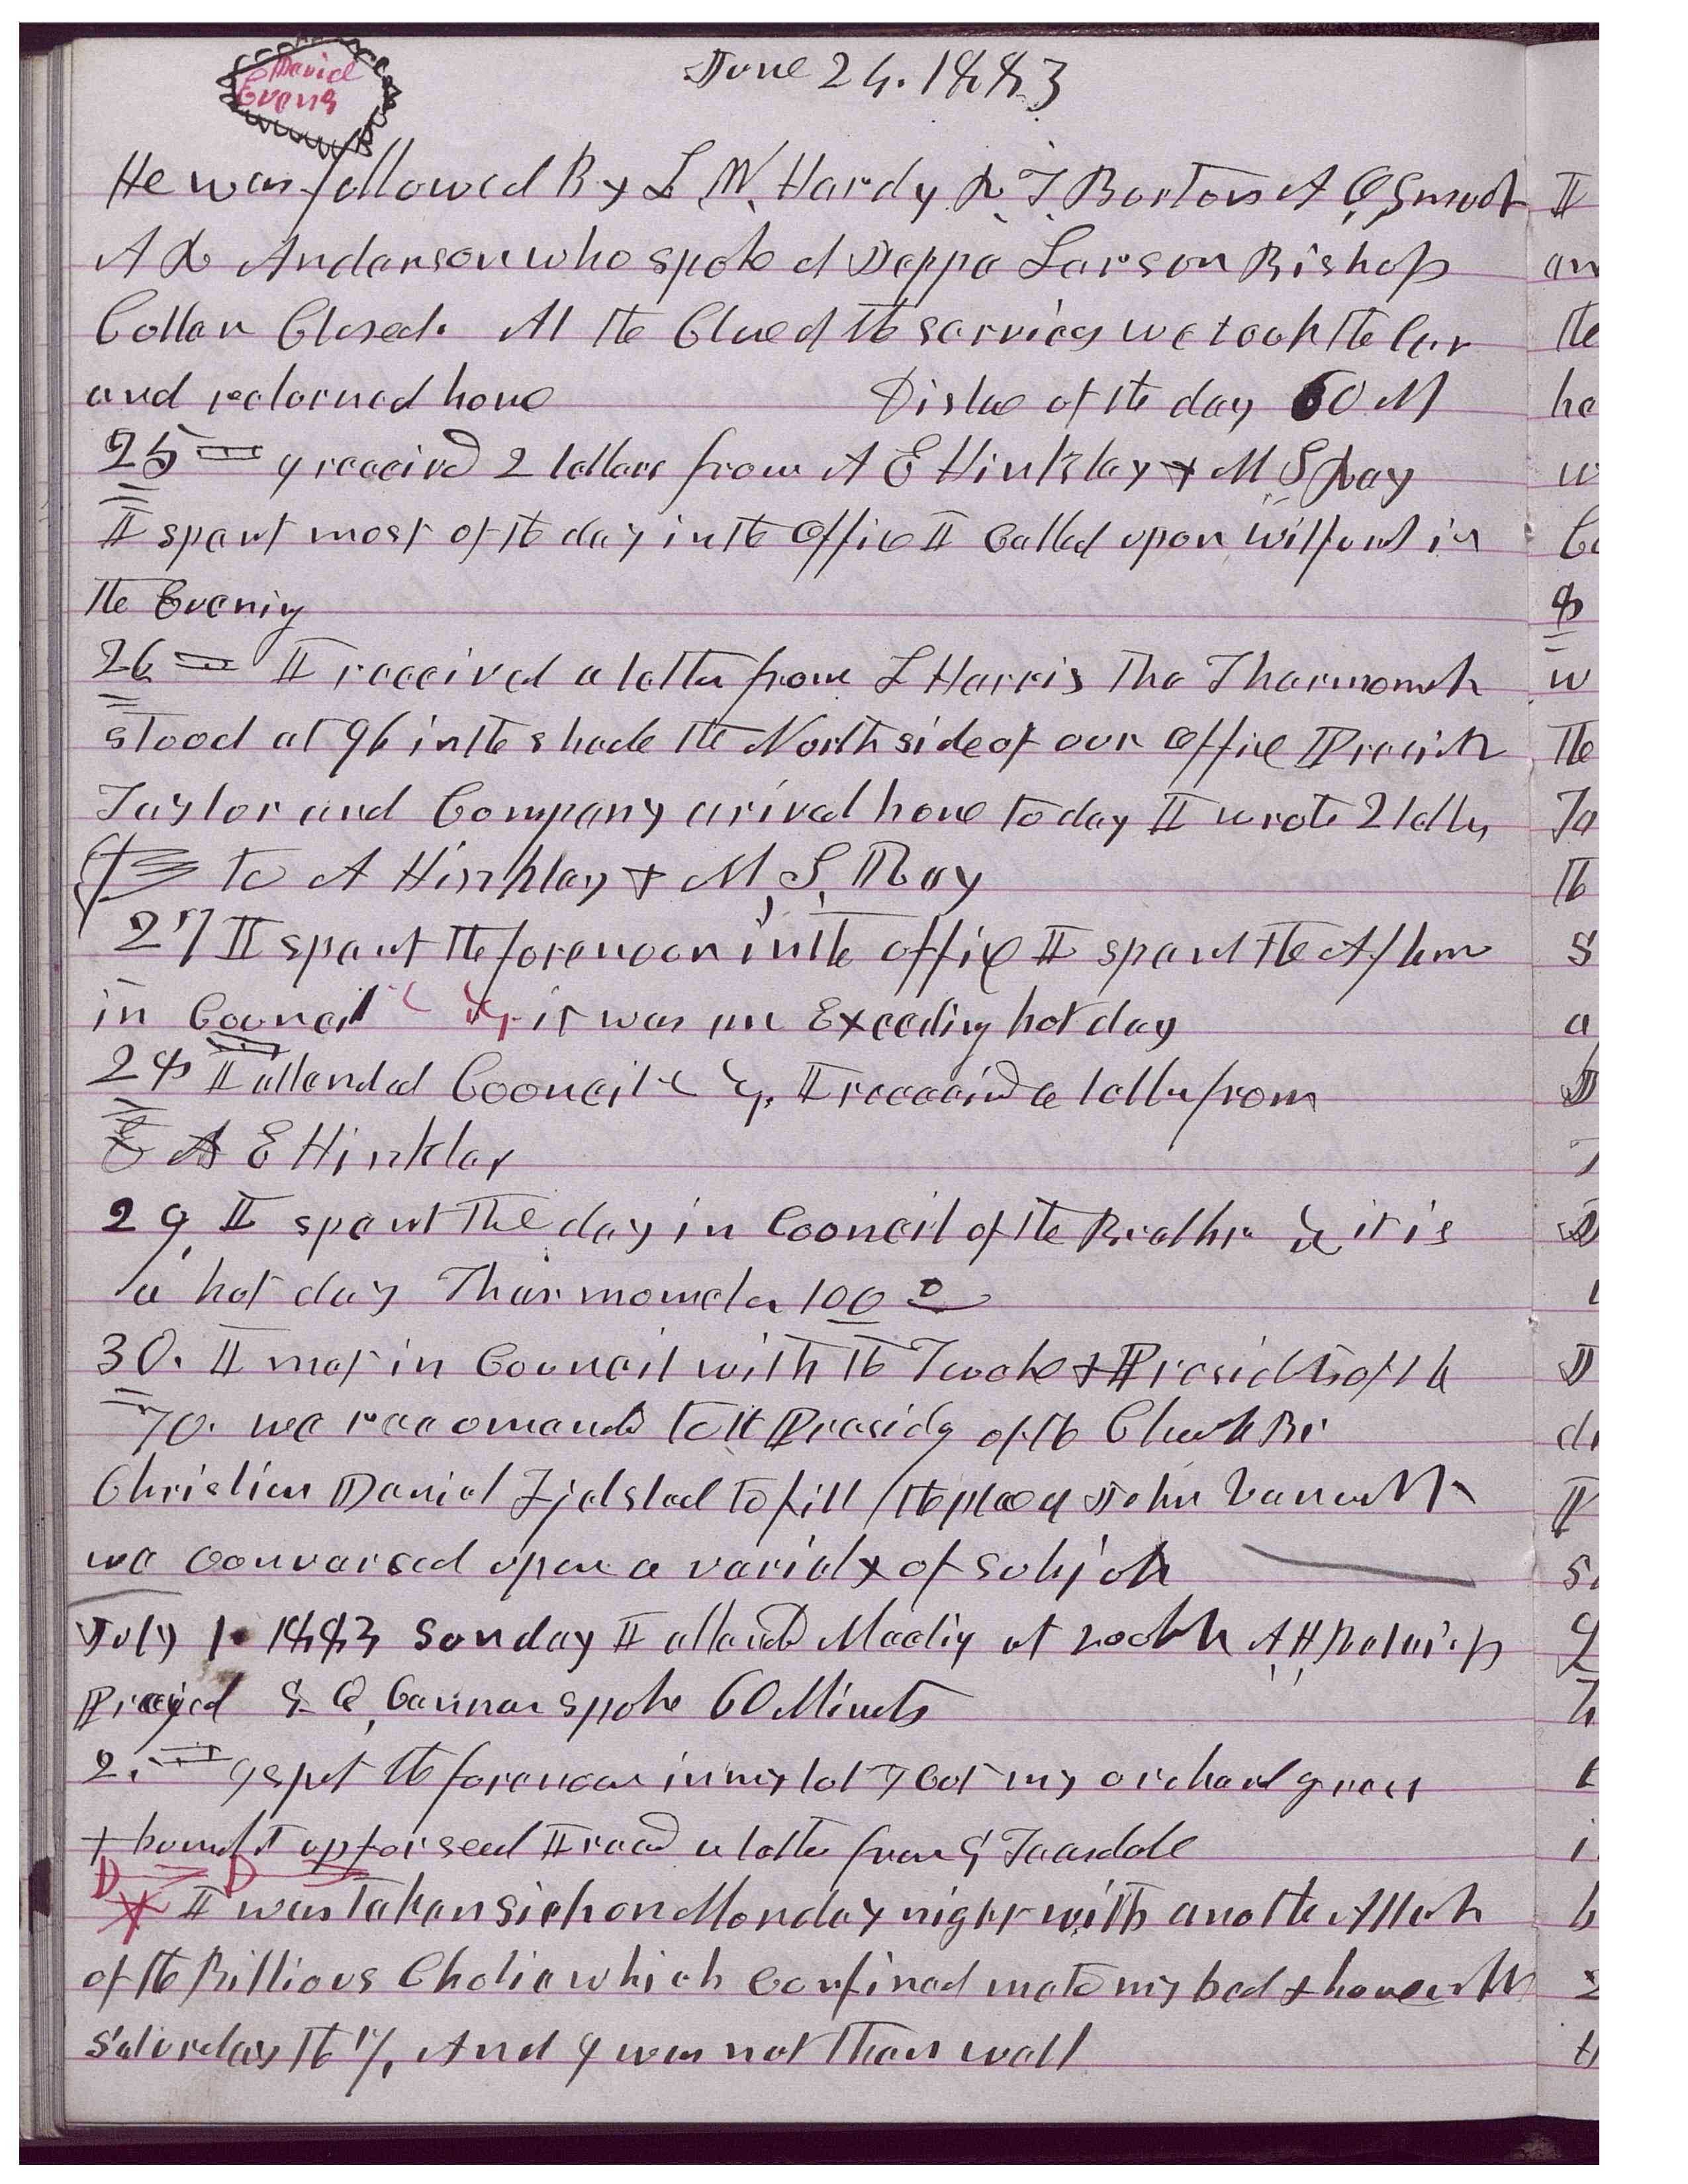 David
Evans
June 24. 1883
He was followed By L W. Hardy R. T Burton A O, Smoot
A L Anderson who spoke of Deppa Larson Bishop
Collar Closed. At the Close of the services we took the Car
and returned home Distance of the day 60 M
25 I received 2 letters from A E Hinkley & M S Ray
I spent most of the day in the Office I Called upon Wilford in
the Evening
26 I received a letter from L Harris The Thermometer
stood at 96 in the shade the North side of our Office President
Taylor and Company arived home to day I wrote 2 letters
to A Hinkley & M, S, Ray
27 I spent the forenoon in the office I spent the Afternoon
in Council it was an Exceeding hot day
28 I attended Council I received a letter from
A E Hinkley
29, I spent the day in Council of the Brethren it is
a hot day Thermometer 100
30. I met in Council with the Twelve & Presidents of the
70. we recomended to the Presidency of the Church Br
Christian Daniel Fjelsted to fill the place of John Vancott
we conversed upon a variety of subjects
July 1. 1883 Sunday I attended Meeting at 2 oclock A H Raleigh
Prayed G Q, Cannon spoke 60 Minutes
2. I spent the forenoon in my lot I cut my orchard grass
& bound it up for seed I recd a letter from Teasdale
I was taken sick on Monday night with another Attack
of the Billious Cholic which Confined me to my bed & house untill
Saturday the 7, And I was not then well